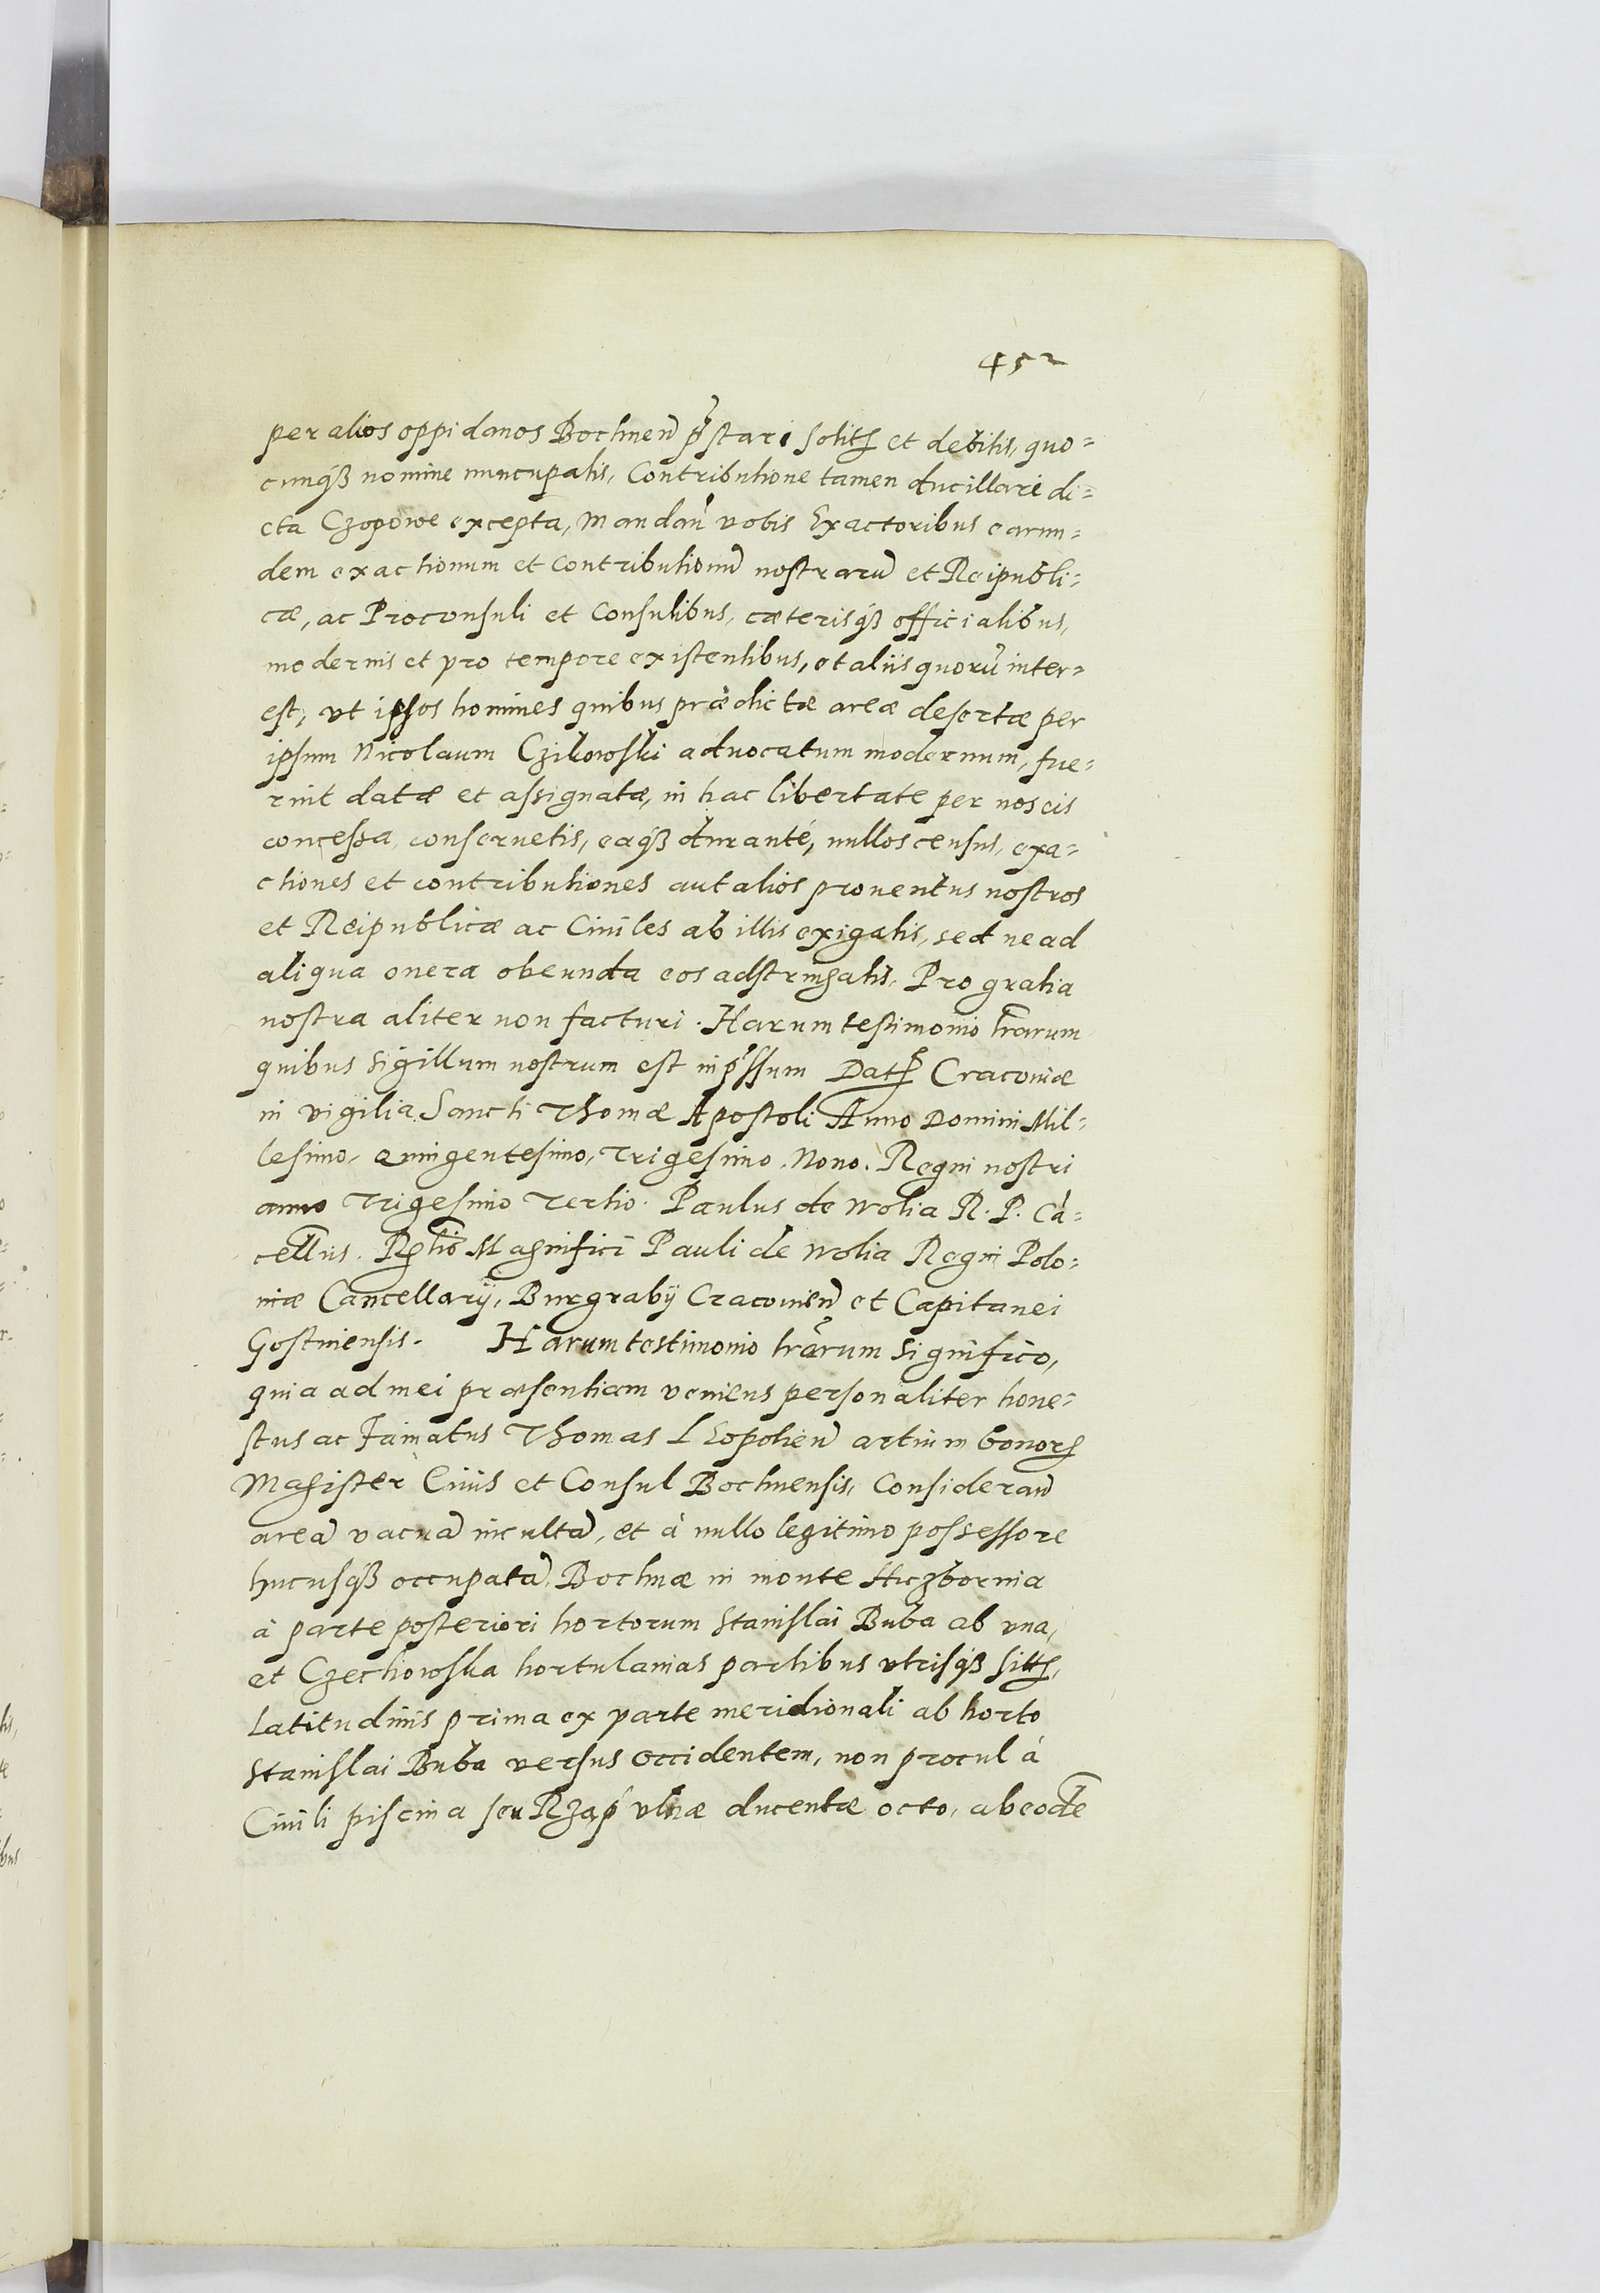 452
per alios oppidanos Bochnen̄ p̄stari solitꝭ et debitis, quo=
cunqꝫ nomine nuncupatis, Contributione tamen ducillari di=
cta Czopowe excepta, Mandan̄ vobis Exactoribus earun=
dem exactionum et Contributionū nostrarū et Reipubli=
cæ, ac Proconsuli et Consulibus, cæterisqꝫ officialibus,
modernis et pro tempore existentibus, et aliis quorū inter=
est, vt ipsos homines quibus prædictæ areæ desertæ per
ipsum Nicolaum Czikowski aduocatum modernum, fue=
rint datæ et assignatæ, in hac libertate per nos eis
concessa conseruetis, eaqꝫ durante, nullos census, exa=
ctiones et contributiones aut alios prouentus nostros
et Reipublicæ ac Ciuiles ab illis exigatis, sed ne ad
aliqua onera obeunda eos adstringatis, Pro gratia
nostra aliter non facturi. Harum testimonio lr̄arum
quibus sigillum nostrum est inp̄ssum Datꝭ Cracoviæ
in vigilia Sancti Thomæ Apostoli Anno Domini Mil=
lesimo, Quingentesimo, Trigesimo, Nono. Regni nostri
anno Trigesimo Tertio. Paulus de Wolia R. P. Cā=
cellrius. Rꝭlatio Magnifici Pauli de Wolia Regni Polo=
niæ Cancellarij, Burgrabij Cracouien̄ et Capitanei
Gostinensis. Harum testimonio lr̄arum significo,
quia ad mei præsentiam veniens personaliter hone=
stus ac Famatus Thomas Leopolien̄ artium bonorꝭ
Magister Ciuis et Consul Bochnensis, Consideran̄
areā vacuā incultā, et à nullo legitimo possessore
hucusqꝫ occupatā, Bochnæ in monte Huczbornia
à parte posteriori hortorum Stanislai Buba ab vna,
et Czechowska hortulanias partibus vtrisqꝫ sitꝭ,
Latitudinis prima ex parte meridionali ab horto
Stanislai Buba versus Occidentem, non procul à
Ciuili piscina seu Rzap vlnæ ducentæ octo, ab eodē